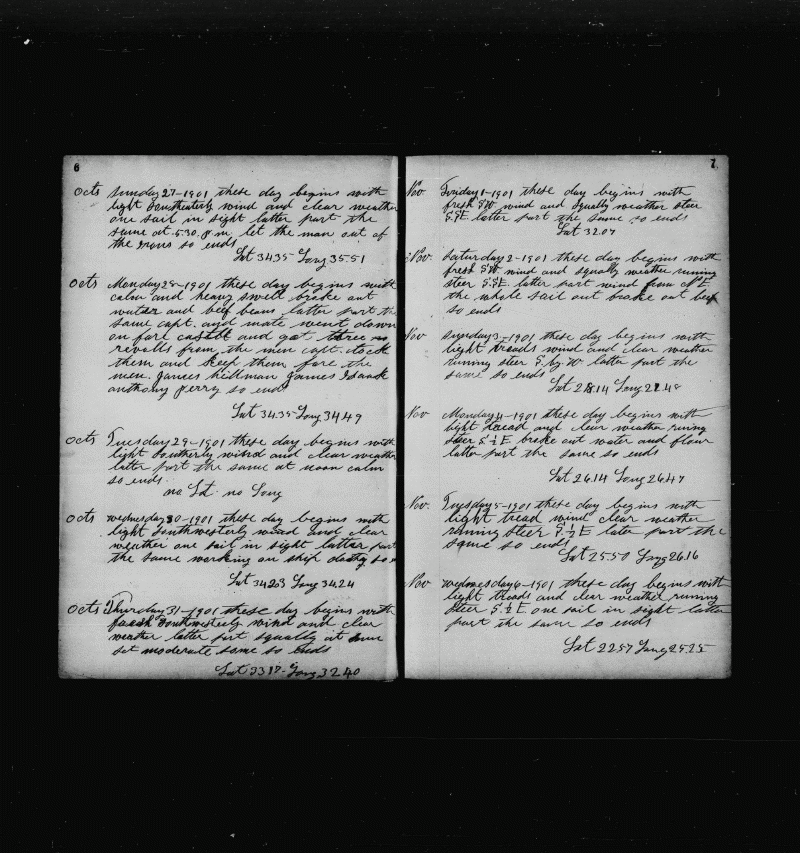 6
Octs Sunday 27-1901 these day begins with
light Southeasterly wind and clear weather
one sail in sight latter part the
same at 5.30. P.m. let the man out of
the irons so ends
Lat 34.35 Long 35.51
Octs Monday 28-1901 these day begins with
calm and heavy swell broke out
water and beef beans latter part the
same capt. and mate went down
on fore and got three
revolts from the men capt. tock
them and keep them fore the
men. James Hillman James Isaack
anthony perry so ends
Lat 34.35 Long 34.49
Octs Tuesday 29-1901 these day begins with
light Southerly wind and clear weather
latter part the same at noon calm
so ends.
no Lat. no Long
Octs wednesday 30-1901 these day begins with
light Southwesterly wind and clear
weather one sail in sight latter part
the same working on ship so
Lat 34203 Long 34.24
Octs Thursday 31-1901 these day begins with
Southwesterly wind and clear
weather latter part squally at sun
set moderate same so ends
Lat 33 17- Long 32 40
7
Nov Friday 1-1901 these day begins with
fresh SW wind and squally weather steer
S.S.E. latter part the same so ends
Lat 32 07
Nov Saturday 2-1901 these day begins with
fresh SW wind and squally weather runing
steer S.S.E. latter part wind from N.E.
the whole sail out broke out beef
so ends
Nov Sunday 3-1901 these day begins with
light treads wind and clear weather
runing steer S. by. W. latter part the
same so ends
Lat 28.14 Long 27.48
Nov Monday 4-1901 these day begins with
light tread and clear weather runing
steer S ½ E broke out water and flour
latter part the same so ends
Lat 26.14 Long 26.47
Nov. Tuesday 5-1901 these day begins with
light tread wind clear weather
running steer S ½ E. later part the
same so ends
Lat 25.50 Long 26.16
Nov wednesday 6-1901 these day begins with
light treads and clear weather runing
steer S. ½ E. one sail in sight latter
part the same so ends
Lat 22 57 Long 25.25